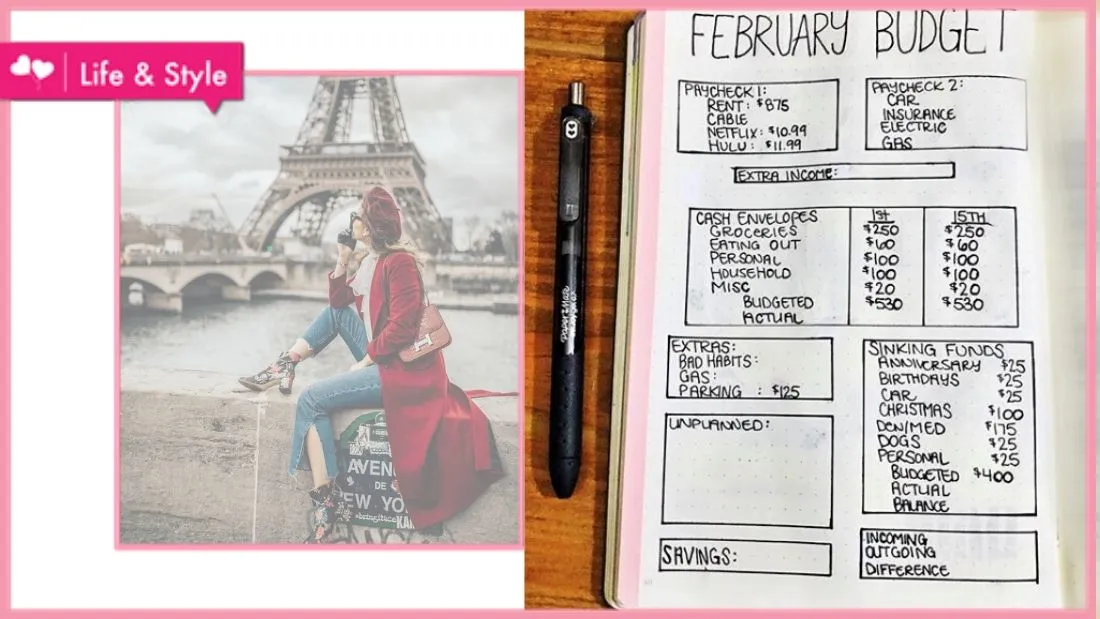 Life & Style
AVEN
DE
EW YO
FEBRUARY BUDGET
PAYCHECK 1:
RENT: $875
CABLE
NETFLIX: $10.99
HULU: $11.99
PAYCHECK 2:
CAR
INSURANCE
ELECTRIC
GAS
EXTRA INCOME:
CASH ENVELOPES 1st 15TH
GROCERIES $250 $250
EATING OUT $60 $60
PERSONAL $100 $100
HOUSEHOLD $100 $100
MISC $20 $20
BUDGETED $530 $530
ACTUAL
EXTRAS:
BAD HABITS:
GAS:
PARKING : $125
SINKING FUNDS
ANNIVERSARY $25
BIRTHDAYS $25
CAR $25
CHRISTMAS $100
DEN/MED $175
DOGS $25
PERSONAL $25
BUDGETED $400
ACTUAL
BALANCE
UNPLANNED:
SAVINGS:
INCOMING
OUTGOING
DIFFERENCE